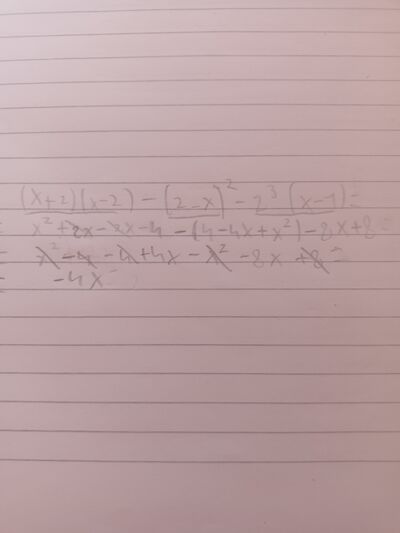 (x+2)(x-2) - (2-x)² - 2³(x-1)=
= x²+2x-2x-4 - (4-4x+x²)-8x+8=
= x²-4 - 4+4x - x² - 8x +8=
= -4x